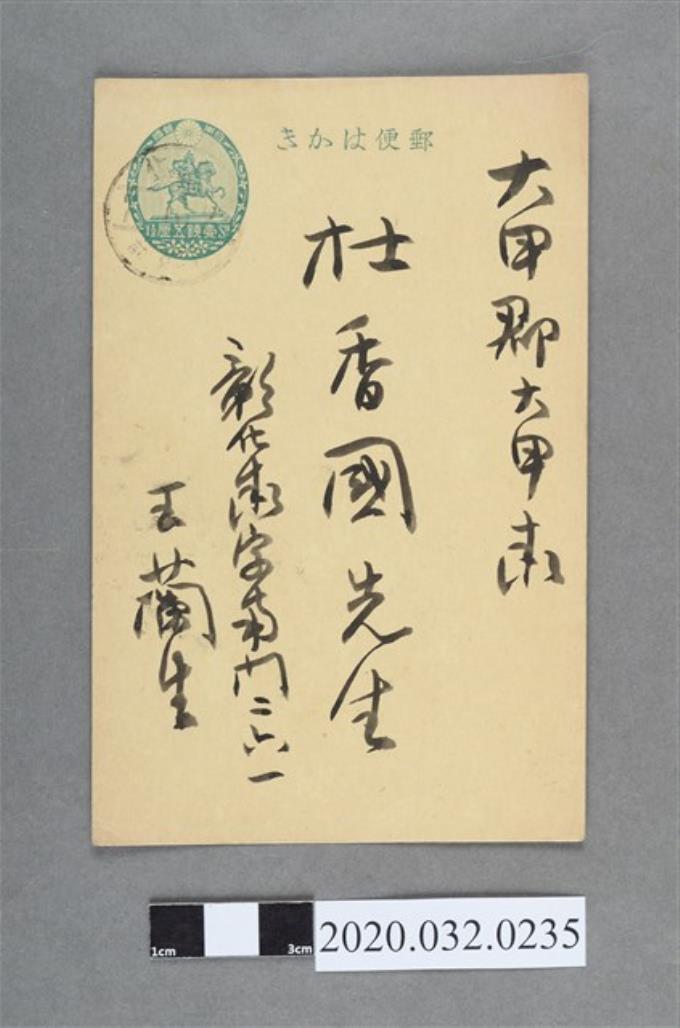 郵便はかき
大甲郡大甲街
杜香國先生
彰化街字南門二六一
王蘭生
壹錢五厘
1cm
3cm
2020.032.0235